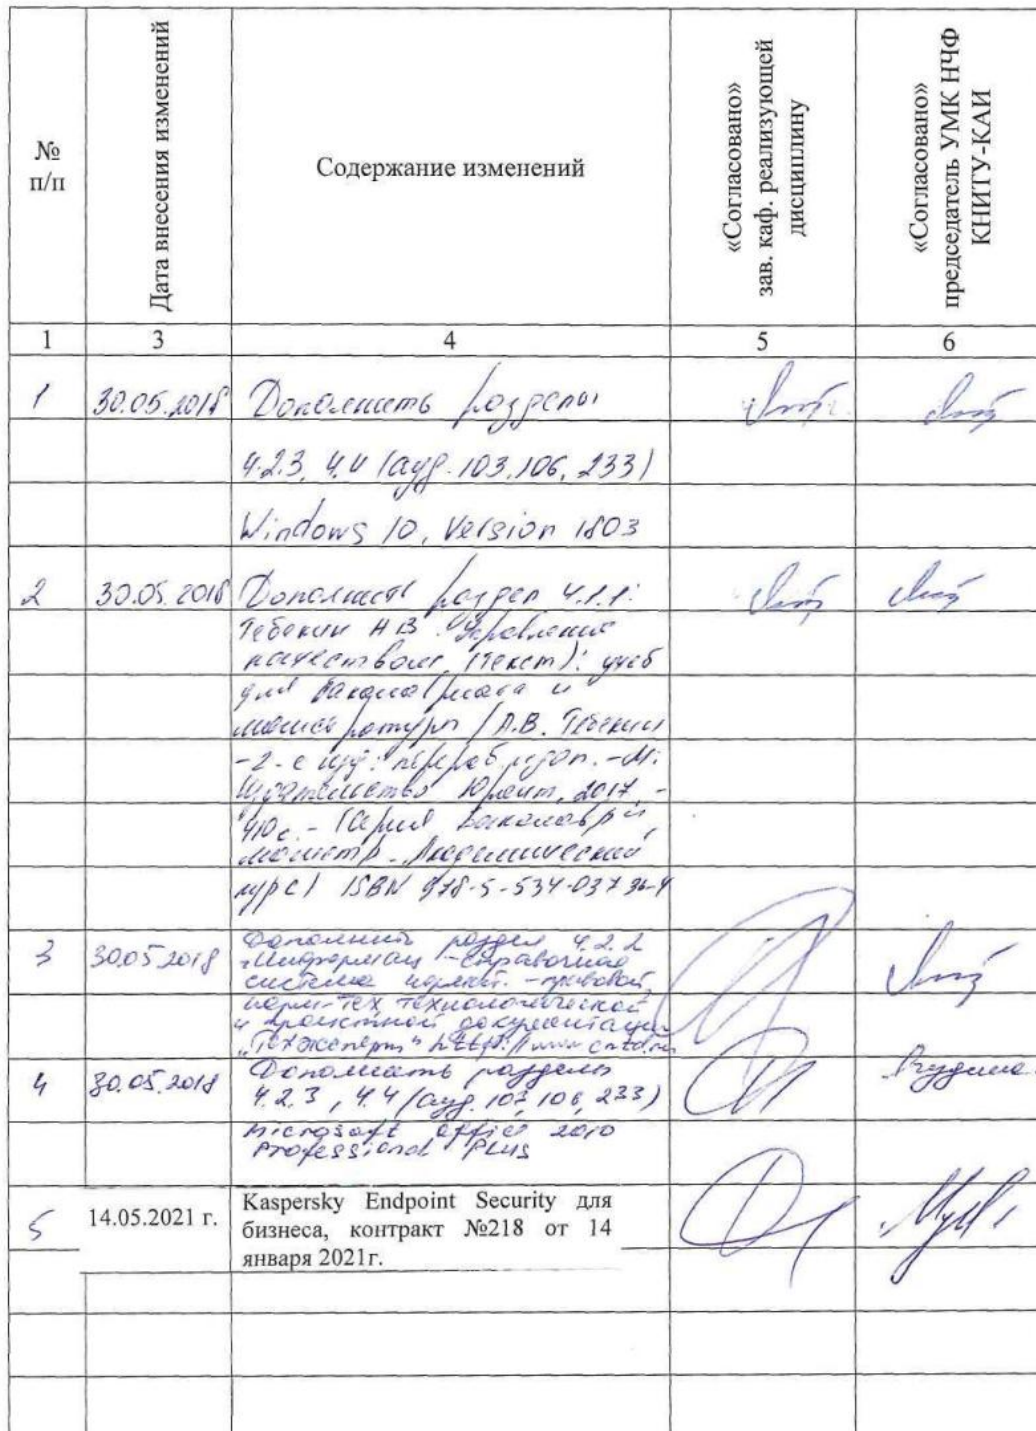 №
п/п
Дата внесения изменений
Содержание изменений
«Согласовано»
зав. каф. реализующей
дисциплину
«Согласовано»
председатель УМК НЧФ
КНИТУ-КАИ
1 3 4 5 6
1 30.05.2018 Дополнить разделы
4.2.3, 4.4 (ауд. 103, 106, 233)
Windows 10, Version 1803
2 30.05.2018 Дополнить раздел 4.1.1:
Тебекин А.В. Управление
качеством (текст): учеб
для бакалавриата и
магистратуры / А.В. Тебекин
-2-е изд: перераб. и доп. - М:
Издательство Юрайт, 2017. -
410с. - (Серия Бакалавр и
магистр. Академический
курс) ISBN 978-5-534-03736-4
3 30.05.2018 Дополнить раздел 4.2.2
"Информац-справочная
система -правовой,
норм-тех, технологической
и проектной документации
„Техэксперт" http://www.cntd.ru
4 30.05.2018 Дополнить разделы
4.2.3, 4.4 (ауд. 103, 106, 233)
Microsoft office 2010
Professional Plus
5 14.05.2021 г. Kaspersky Endpoint Security для
бизнеса, контракт №218 от 14
января 2021г.